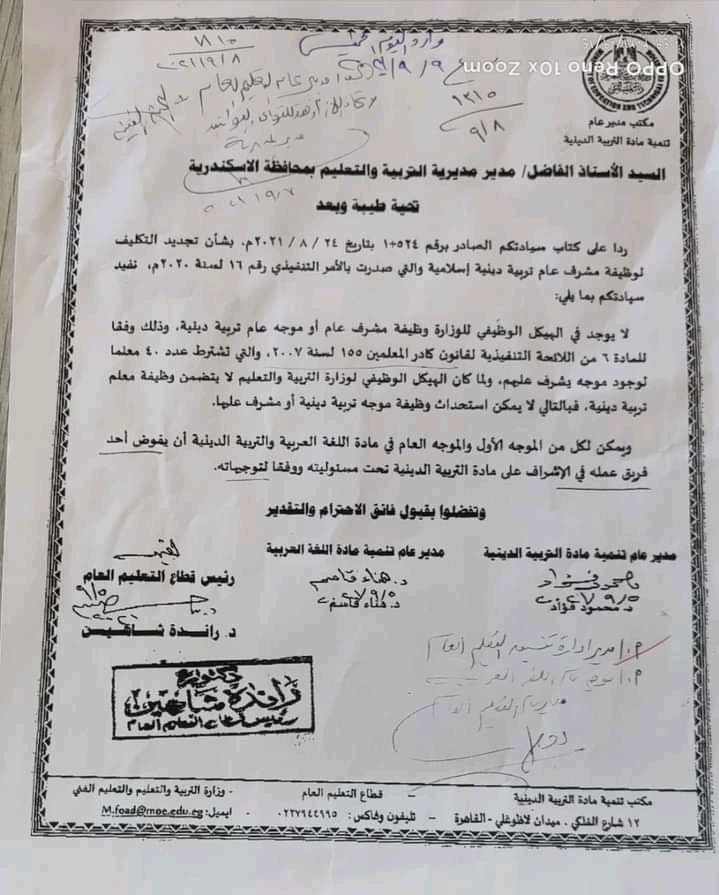 وارد
OPPO Reno 10x Zoom
٢٠٢١/٩/٨
١٣١٥
٩/٨
OF EDUCATION AND TECHNICAL
مكتب مدير عام
تنمية مادة التربية الدينية
السيد الأستاذ الفاضل/ مدير مديرية التربية والتعليم بمحافظة الاسكندرية
تحية طيبة وبعد
ردا على كتاب سيادتكم الصادر برقم ١٠٥٢٤ بتاريخ ٢٤ / ٨ / ٢٠٢١م، بشأن تجديد التكليف
لوظيفة مشرف عام تربية دينية إسلامية والتي صدرت بالأمر التنفيذي رقم ١٦ لسنة ٢٠٢٠م، نفيد
سيادتكم بما يلي:
لا يوجد في الهيكل الوظيفي للوزارة وظيفة مشرف عام أو موجه عام تربية دينية، وذلك وفقا
للمادة ٦ من اللائحة التنفيذية لقانون كادر المعلمين ١٥٥ لسنة ٢٠٠٧، والتي تشترط عدد ٤٠ معلما
لوجود موجه يشرف عليهم، ولما كان الهيكل الوظيفي لوزارة التربية والتعليم لا يتضمن وظيفة معلم
تربية دينية، فبالتالي لا يمكن استحداث وظيفة موجه تربية دينية أو مشرف عليها.
ويمكن لكل من الموجه الأول والموجه العام في مادة اللغة العربية والتربية الدينية أن يفوض أحد
فريق عمله في الإشراف على مادة التربية الدينية تحت مسئوليته ووفقا لتوجيهاته.
وتفضلوا بقبول فائق الاحترام والتقدير
مدير عام تنمية مادة التربية الدينية
د. محمود فؤاد
مدير عام تنمية مادة اللغة العربية
د. هناء قاسم
د. هناء قاسم
رئيس قطاع التعليم العام
د. راندة شاهين
دكتورة
راندة شاهين
رئيس قطاع التعليم العام
مكتب تنمية مادة التربية الدينية – قطاع التعليم العام - وزارة التربية والتعليم والتعليم الفني
١٢ شارع الفلكي . ميدان لاظوغلي - القاهرة – تليفون وفاكس : ٠٢٢٧٩٤٤٩٩٥ - ايميل: M.foad@moe.edu.eg